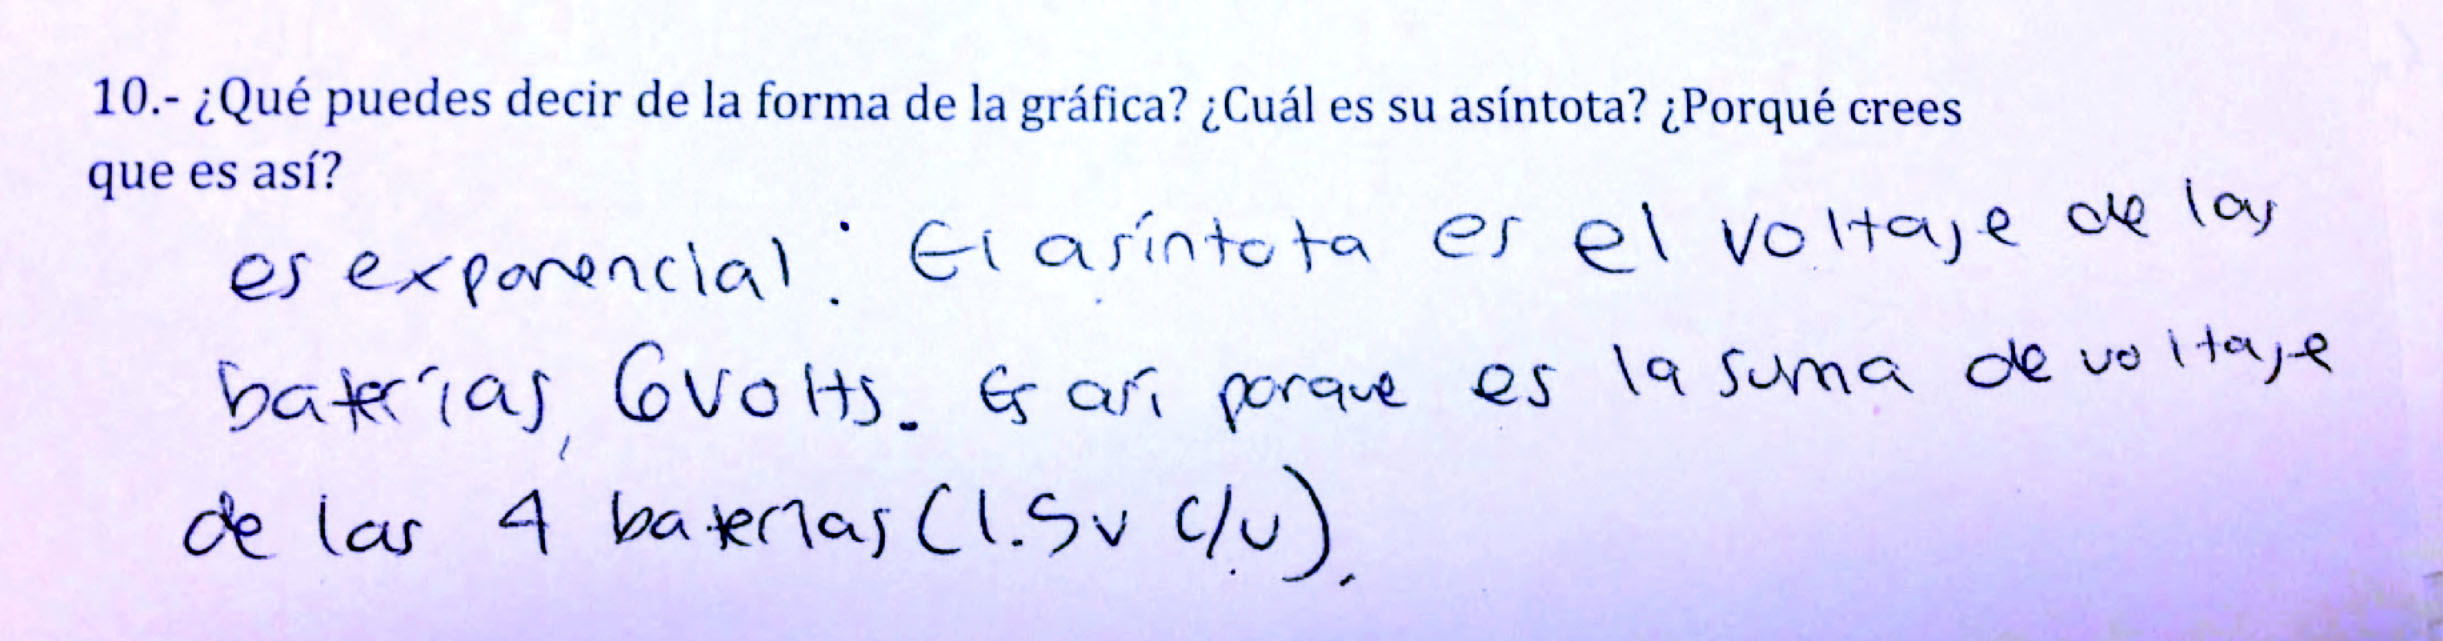 10.- ¿Qué puedes decir de la forma de la gráfica? ¿Cuál es su asíntota? ¿Porqué crees
que es así?
es exponencial. El asíntota es el voltaje de las
baterías, 6 volts. Es así porque es la suma de voltaje
de las 4 baterías (1.5v c/u).